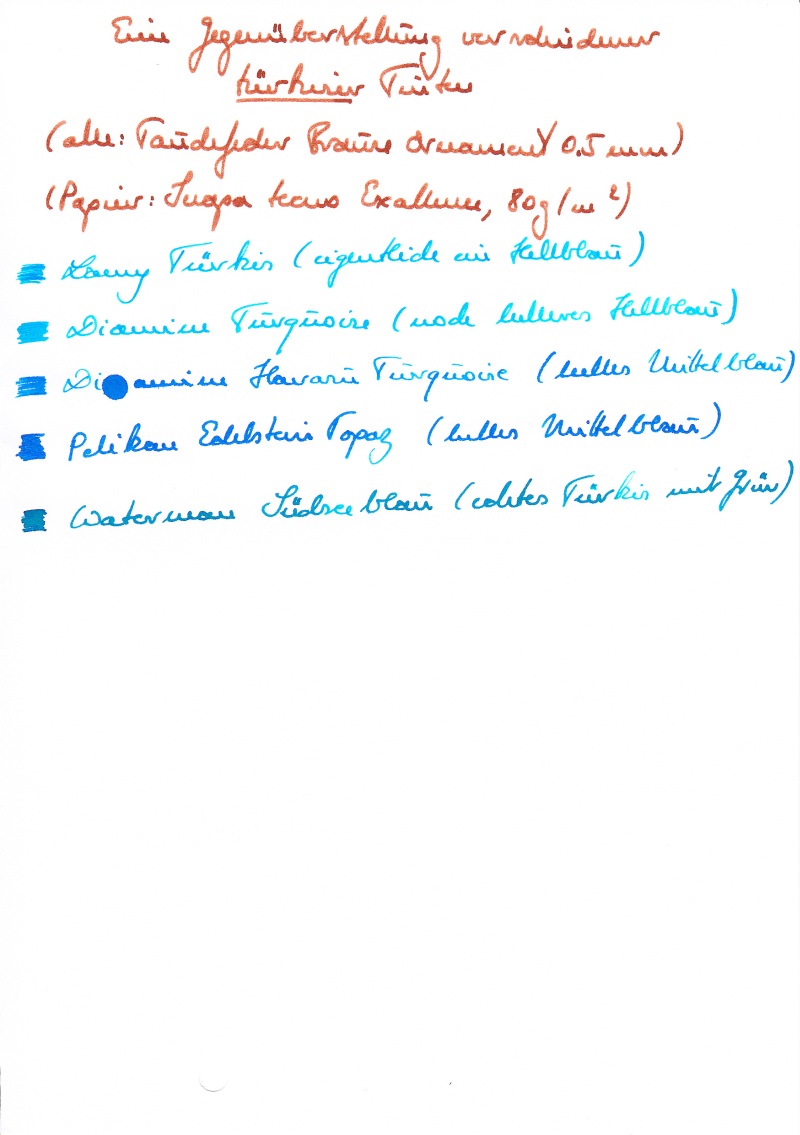 Eine Gegenüberstellung verschiedener
türkiser Tinten
(alle: Tauchfeder Brause Ornament 0.5 mm)
(Papier: Inapa tecno Excellence, 80g/m²)
Lamy Türkis (eigentlich ein Hellblau)
Diamine Turquoise (noch helleres Hellblau)
Diamine Havasu Turquoise (helles Mittelblau)
Pelikan Edelstein Topaz (helles Mittelblau)
Waterman Südseeblau (echtes Türkis mit Grün)